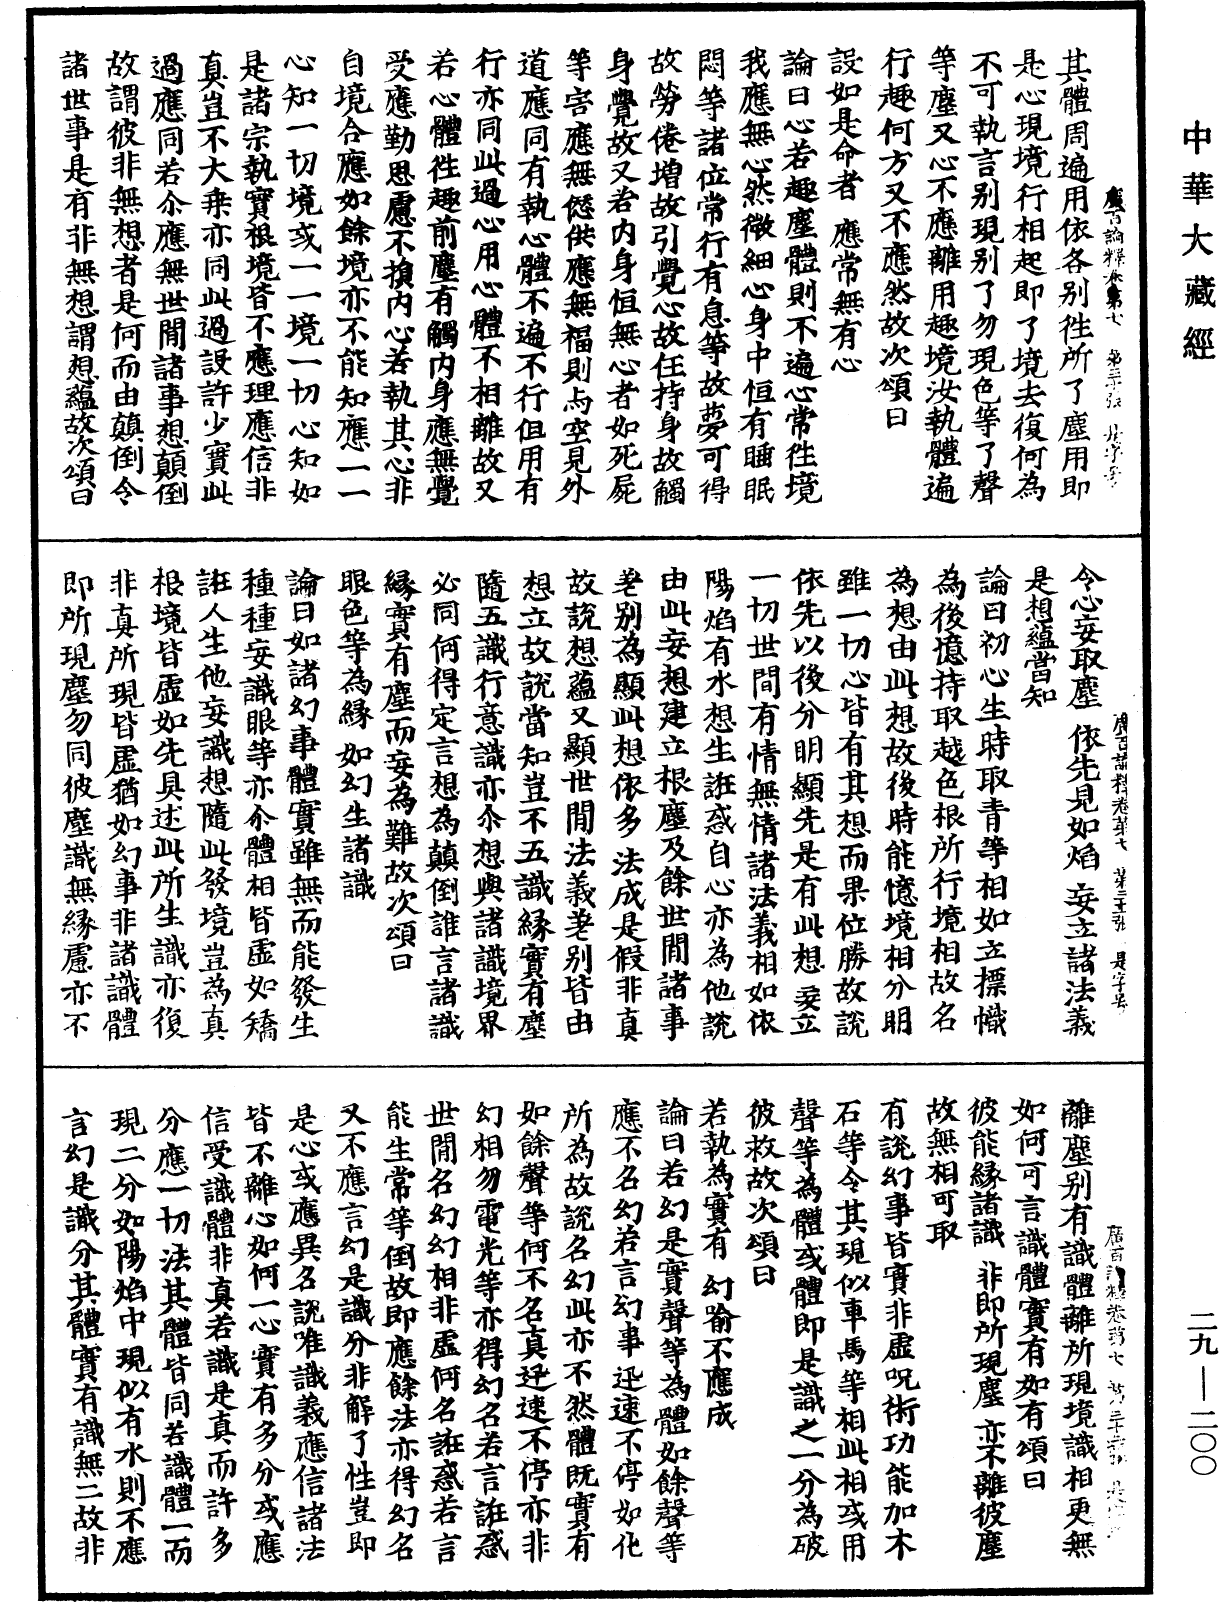 中華大藏經
其體周遍用依各別徃所了塵用即
是心現境行相起即了境去復何為
不可執言別現別了勿現色等了聲
等塵又心不應離用趣境汝執體遍
行趣何方又不應然故次頌曰
設如是命者　應常無有心
論曰心若趣塵體則不遍心常徃境
我應無心然微細心身中恒有睡眠
悶等諸位常行有息等故夢可得
故勞倦增故引覺心故任持身故觸
身覺故又若内身恒無心者如死屍
等害應無愆供應無福則与空見外
道應同有執心體不遍不行但用有
行亦同此過心用心體不相離故又
若心體徃趣前塵有觸内身應無覺
受應勤思慮不損内心若執其心非
自境合應如餘境亦不能知應一一
心知一切境或一一境一切心知如
是諸宗執實根境皆不應理應信非
真豈不大乘亦同此過設許少實此
過應同若尒應無世閒諸事想顛倒
故謂彼非無想者是何而由顛倒令
諸世事是有非無想謂想蘊故次頌曰
令心妄取塵　依先見如焰　妄立諸法義
是想蘊當知
論曰初心生時取青等相如立標幟
為後憶持取越色根所行境相故名
為想由此想故後時能憶境相分明
雖一切心皆有其想而果位勝故說
依先以後分明顯先是有此想妄立
一切世閒有情無情諸法義相如依
陽焰有水想生誑惑自心亦為他說
由此妄想建立根塵及餘世閒諸事
差別為顯此想依多法成是假非真
故說想蘊又顯世閒法義差別皆由
想立故說當知豈不五識緣實有塵
隨五識行意識亦尒想與諸識境界
必同何得定言想為顛倒誰言諸識
緣實有塵而妄為難故次頌曰
眼色等為緣　如幻生諸識
論曰如諸幻事體實雖無而能發生
種種妄識眼等亦尒體相皆虛如矯
誑人生他妄識想隨此發境豈為真
根境皆虛如先具述此所生識亦復
非真所現皆虛猶如幻事非諸識體
即所現塵勿同彼塵識無緣慮亦不
離塵別有識體離所現境識相更無
如何可言識體實有如有頌曰
彼能緣諸識　非即所現塵　亦不離彼塵
故無相可取
有說幻事皆實非虛呪術功能加木
石等令其現似車馬等相此相或用
聲等為體或體即是識之一分為破
彼救故次頌曰
若執為實有　幻喻不應成
論曰若幻是實聲等為體如餘聲等
應不名幻若言幻事迅速不停如化
所為故說名幻此亦不然體既實有
如餘聲等何不名真迅速不停亦非
幻相勿電光等亦得幻名若言誑惑
世閒名幻幻相非虛何名誑惑若言
能生常等倒故即應餘法亦得幻名
又不應言幻是識分非解了性豈即
是心或應異名說唯識義應信諸法
皆不離心如何一心實有多分或應
信受識體非真若識是真而許多
分應一切法其體皆同若識體一而
現二分如陽焰中現似有水則不應
言幻是識分其體實有識無二故非
二九—二〇〇